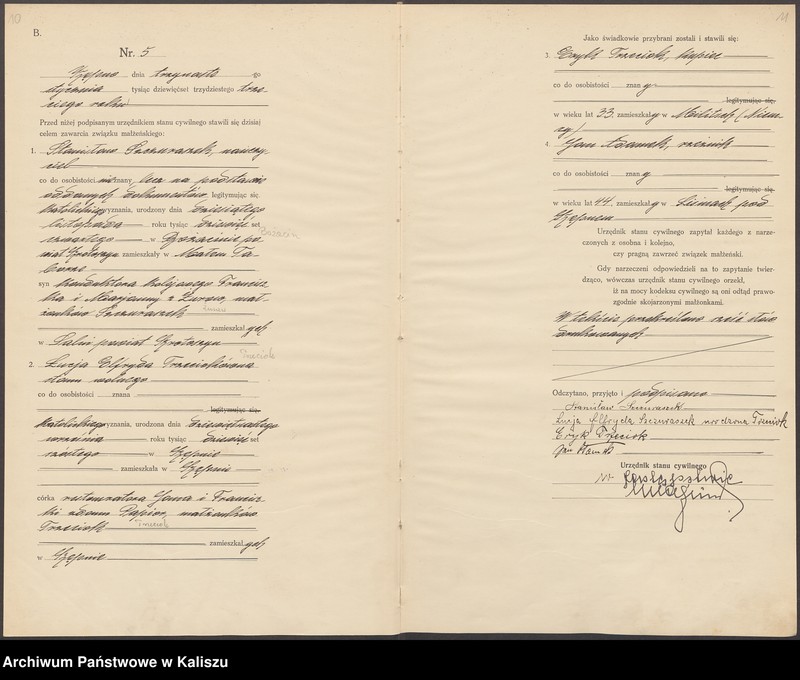 10
B.
Nr. 5
dnia trzynaste go
stycznia tysiąc dziewięćset trzydziestego trze-
ciego roku
Przed niżej podpisanym urzędnikiem stanu cywilnego stawili się dzisiaj
celem zawarcia związku małżeńskiego:
1. Stanisław Szczuraszek, nauczy-
ciel
co do osobistości nieznany, lecz na podstawie
dokumentów legitymując się
katolickiego wyznania, urodzony dnia dziesiątego
listopada roku tysiąc dziewięć set
czwartego w po-
wiat zamieszkały w Małem Ta-
borze
syn konduktora kolejowego Francisz-
ka i Marjanny z mał-
żonków Szczuraszek
zamieszkał ych
w powiat
Trzeciok
2. Łucja Elfryda Trzeciokówna
stanu wolnego
co do osobistości znana
legitymując się
katolickiego wyznania, urodzona dnia dziewiętnastego
września roku tysiąc dziewięć set
szóstego w
zamieszkała w
córka restauratora Jana i Francisz-
ki z domu małżonków
Trzeciok
Trzeciok
zamieszkał ych
w
11
Jako świadkowie przybrani zostali i stawili się:
3. Eryk Trzeciok, kupiec
co do osobistości znan y
legitymując się
w wieku lat 33 zamieszkały w (Niem-
cy)
4. Jan Adamek, rolnik
co do osobistości znan y
legitymując się
w wieku lat 44 zamieszkały w pod
Urzędnik stanu cywilnego zapytał każdego z narze-
czonych z osobna i kolejno,
czy pragną zawrzeć związek małżeński.
Gdy narzeczeni odpowiedzieli na to zapytanie twier-
dząco, wówczas urzędnik stanu cywilnego orzekł,
iż na mocy kodeksu cywilnego są oni odtąd prawo-
zgodnie skojarzonymi małżonkami.
W tekście przekreślono sześć słów
drukowanych
Odczytano, przyjęto i podpisano
Stanisław Szczuraszek
Łucja Elfryda Szczuraszek urodzona Trzeciok
Eryk Trzeciok
Jan Adamek
Urzędnik stanu cywilnego
w zastępstwie
Archiwum Państwowe w Kaliszu